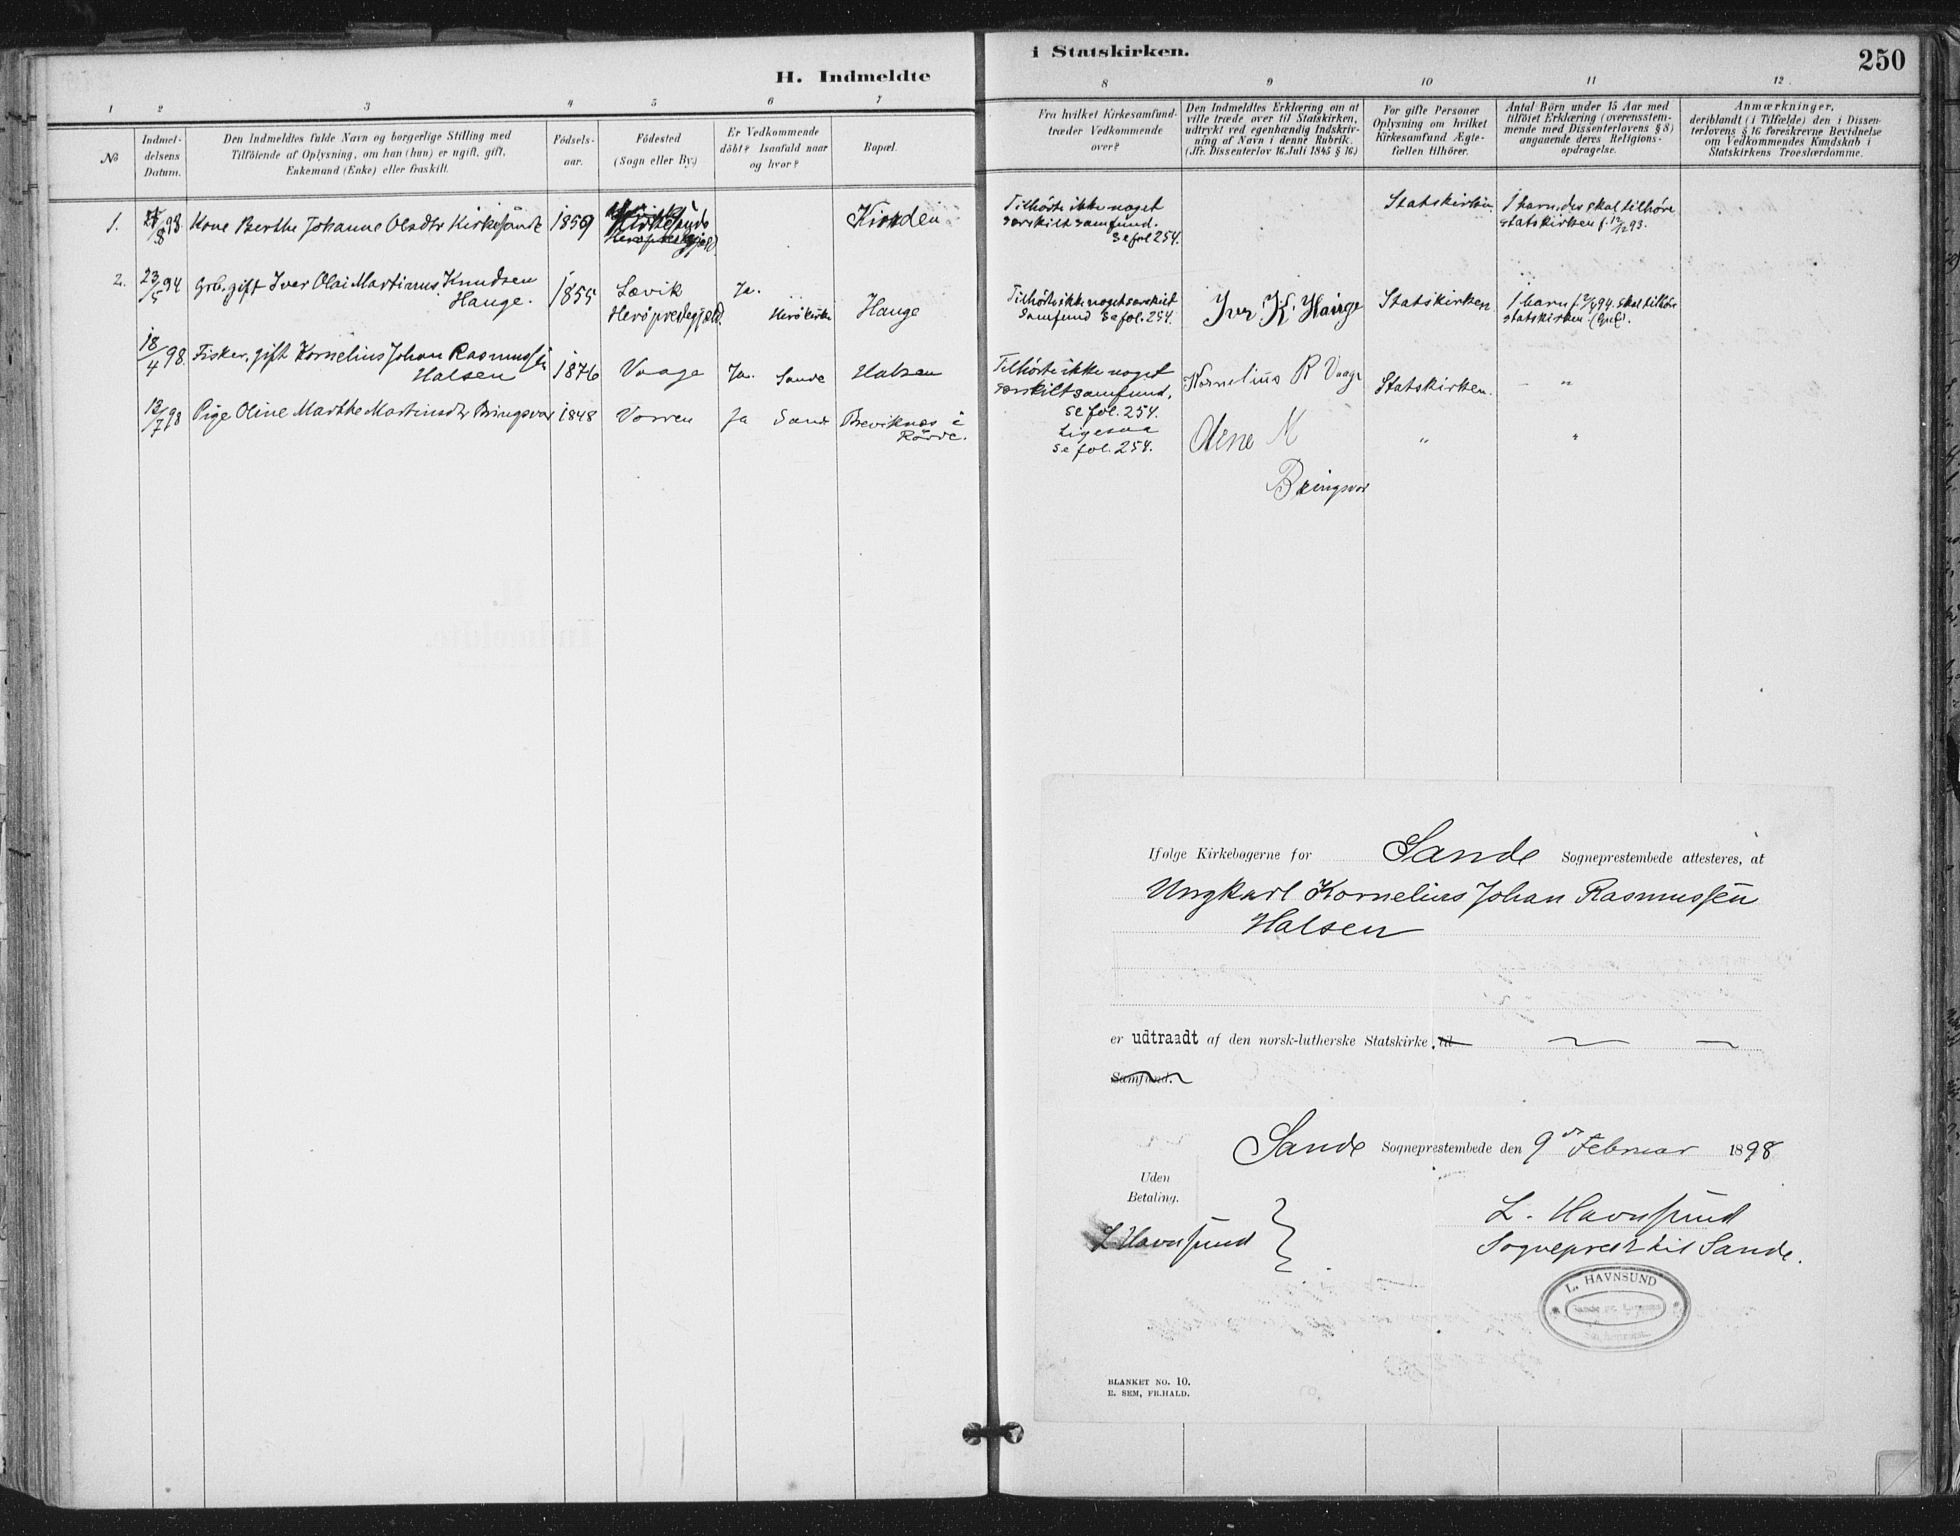 H. Indmeldte
i Statskirken.
250
1 2 3 4 5 6 7
8 9 10 11 12
No
Indmel-
delsens
Datum.
Den Indmeldtes fulde Navn og borgerlige Stilling med
Tilföiende af Oplysning, om han (hun) er ugift, gift,
Enkemand (Enke) eller fraskilt.
Födsels-
aar.
Födested
(Sogn eller By.)
Er Vedkommende
döbt? Isaafald naar
og hvor?
Bopæl.
Fra hvilket Kirkesamfund-
træder Vedkommende
over?
Den Indmeldtes Erklæring om at
ville træde over til Statskirken,
udtrykt ved egenhændig Indskriv-
ning af Navn i denne Rubrik.
(Jfr. Dissenterlov 16 Juli 1845 § 16.)
For gifte Personer
Oplysning om hvilket
Kirkesamfund Ægte-
fællen tilhörer.
Antal Börn under 15 Aar med
tilföiet Erklæring (overensstem-
mende med Dissenterlovens § 8)
angaaende deres Religions-
opdragelse.
Anmærkninger,
deriblandt (i Tilfælde) den i Dissen-
terlovens § 16 foreskrevne Bevidnelse
om Vedkommendes Kundskab i
Statskirkens Troeslærdomme.
1.
Kone Berthe Johanne Olsdtr Kirkesånde
1859
Herøprestegjæld.
Tilhörte ikke noget
særskilt samfund.
Se fol 254.
Statskirken.
1 barn, des skal tilhöre
statskirken f. 12/12 93.
2.
23/5 94
Grb. gift Iver Olai Martinus Knudsen
Hauge.
1855
Lævik
Herøprestegjæld.
Ja.
Herö kirke
Hauge
Tilhörte ikke noget særskilt
samfund Se fol. 254.
Iver K. Hauge
Statskirken
1 barn f. 2/4 94. skal tilhöre
statskirken.
18/4 98.
Fisker, gift Kornelius Johan Rasmussen
Halsen
1876
Vaage
Ja.
Sande
Halsen
Tilhörte ikke noget
særskilt samfund,
se fol. 254.
Kornelius R Vaage
Statskirken.
— "
13/7 98
Pige Oline Marthe Martinsdtr Bringsvor
1848
Vorren
Ja
Sande
Breviknes i
Rövde.
Ligesaa
se fol. 254.
Oline M
Bringsvor
"
"
Ifølge Kirkebøgerne for Sande Sogneprestembede attesteres, at
Ungkarl Kornelius Johan Rasmussen
Halsen
er udtraadt af den norsk-lutherske Statskirke, til
Samfund.
Sande Sogneprestembede den 9de Februar 1898
Uden
Betaling.
L. Havnsund
L. Havnsund
Sogneprest til Sande.
L. HAVNSUND
BLANKET NO. 10.
E. SEM, FR.HALD.